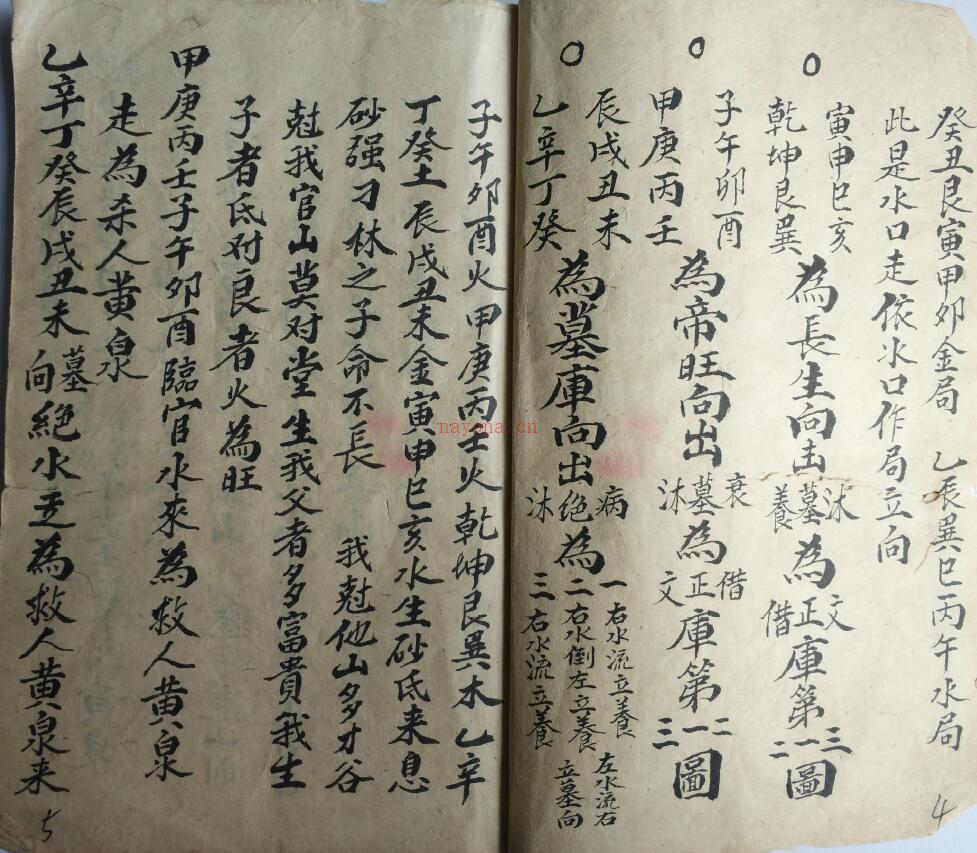 癸丑艮寅甲卯金局 乙辰巽巳丙午水局
此是水口走依水口作局立向
○
寅申巳亥
乾坤艮巽
為長生向出
沐
墓
養
為
文
正
借
庫第
三
一
二
圖
○
子午卯酉
甲庚丙壬
為帝旺向出
衰
墓
沐
為
借
正
文
庫第
二
一
三
圖
○
辰戌丑未
乙辛丁癸
為墓庫向出
病
绝
沐
為
一右水流立養 左水流右
二右水倒左立養 立墓向
三右水流立養
子午卯酉火甲庚丙壬火乾坤艮巽木乙辛
丁癸土辰戌丑未金寅申巳亥水生砂低来息
砂强刁林之子命不長 我尅他山多才谷
尅我官山莫对堂生我父者多富貴我生
子者低对良者火為旺
甲庚丙壬子午卯酉臨官水來為救人黄泉
走為杀人黄泉
乙辛丁癸辰戌丑未墓向絕水走為救人黄泉来
nayona.cn
4
5